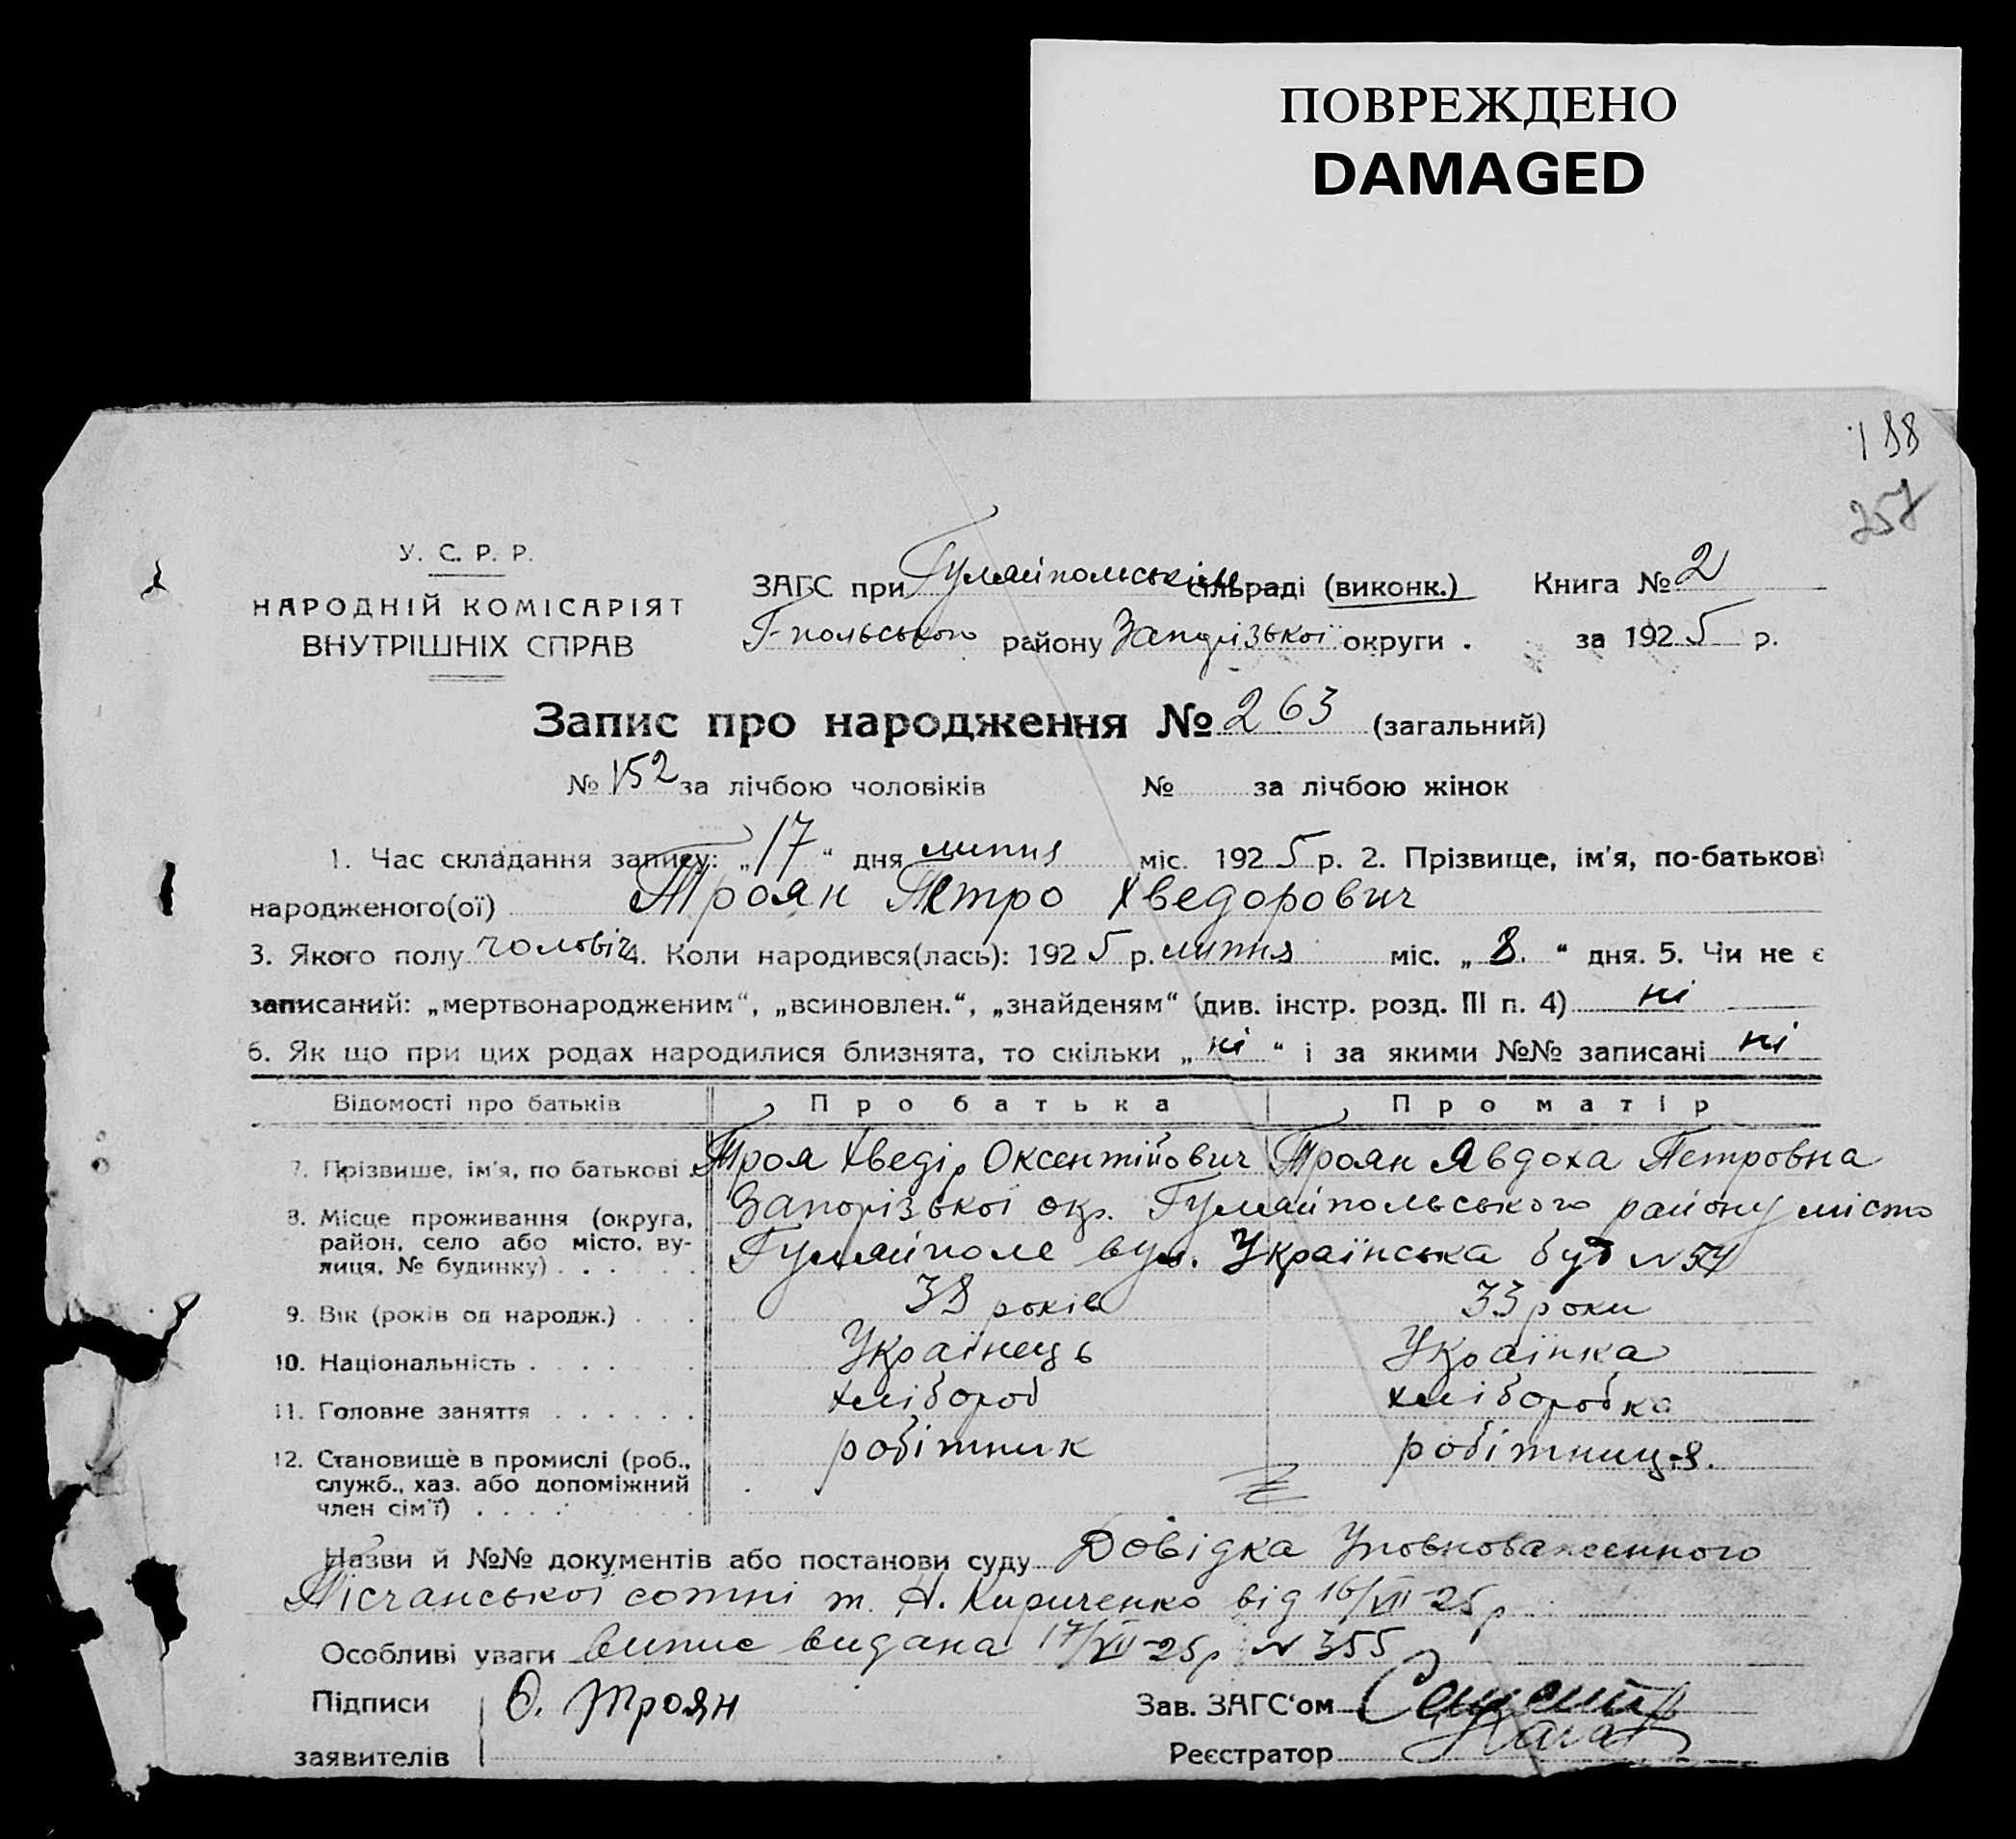 ПОВРЕЖДЕНО
DAMAGED
188
257
У. С. Р. Р.
НАРОДНІЙ КОМІСАРІЯТ
ВНУТРІШНІХ СПРАВ
ЗАГС при Гуляйпольськім сільраді (виконк.) Книга № 2
Г-польського району Запорізької округи . за 1925 р.
Запис про народження № 263 (загальний)
№ 152 за лічбою чоловіків № за лічбою жінок
1. Час складання запису: „17“ дня липня міс. 1925 р. 2. Прізвище, ім'я, по-батькові
народженого(ої) Троян Петро Хведорович
3. Якого полу чоловіч 4. Коли народився(лась): 1925 р. липня міс. „8.“ дня. 5. Чи не є
записаний: „мертвонародженим“, „всиновлен.“, „знайденям“ (див. інстр. розд. III п. 4) ні
6. Як що при цих родах народилися близнята, то скільки „ні“ і за якими №№ записані ні
Відомості про батьків Про батька Про матір
7. Прізвише, ім'я, по батькові Троя Хведір Оксентійович Троян Явдоха Петровна
8. Місце проживання (округа, район, село або місто, вулиця, № будинку) . . . . . Запорізької окр. Гуляйпольського району місто
Гуляйполе вул. Українська буд N 54
9. Вік (років од народж.) . . . 38 років 33 роки
10. Національність . . . . . Українець Українка
11. Головне заняття . . . . . . хлібороб хліборобка
12. Становище в промислі (роб., служб., хаз. або допоміжний член сім'ї) . . . . робітник робітниця.
Назви й №№ документів або постанови суду Довідка Уповноваженного
Пісчанської сотні т. А. Кириченко від 16/VII-25р
Особливі уваги випис видана 17/VII-25р N 355
Підписи О. Троян Зав. ЗАГС‘ом
заявителів Реєстратор